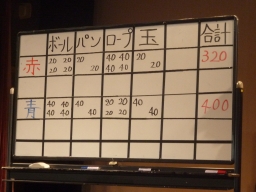 ボール パン ロープ 玉 合計
赤 20 20 20 40 40 20 320
20 20 20 40 40 20
青 40 40 40 20 20 40 400
40 40 40 20 20 40